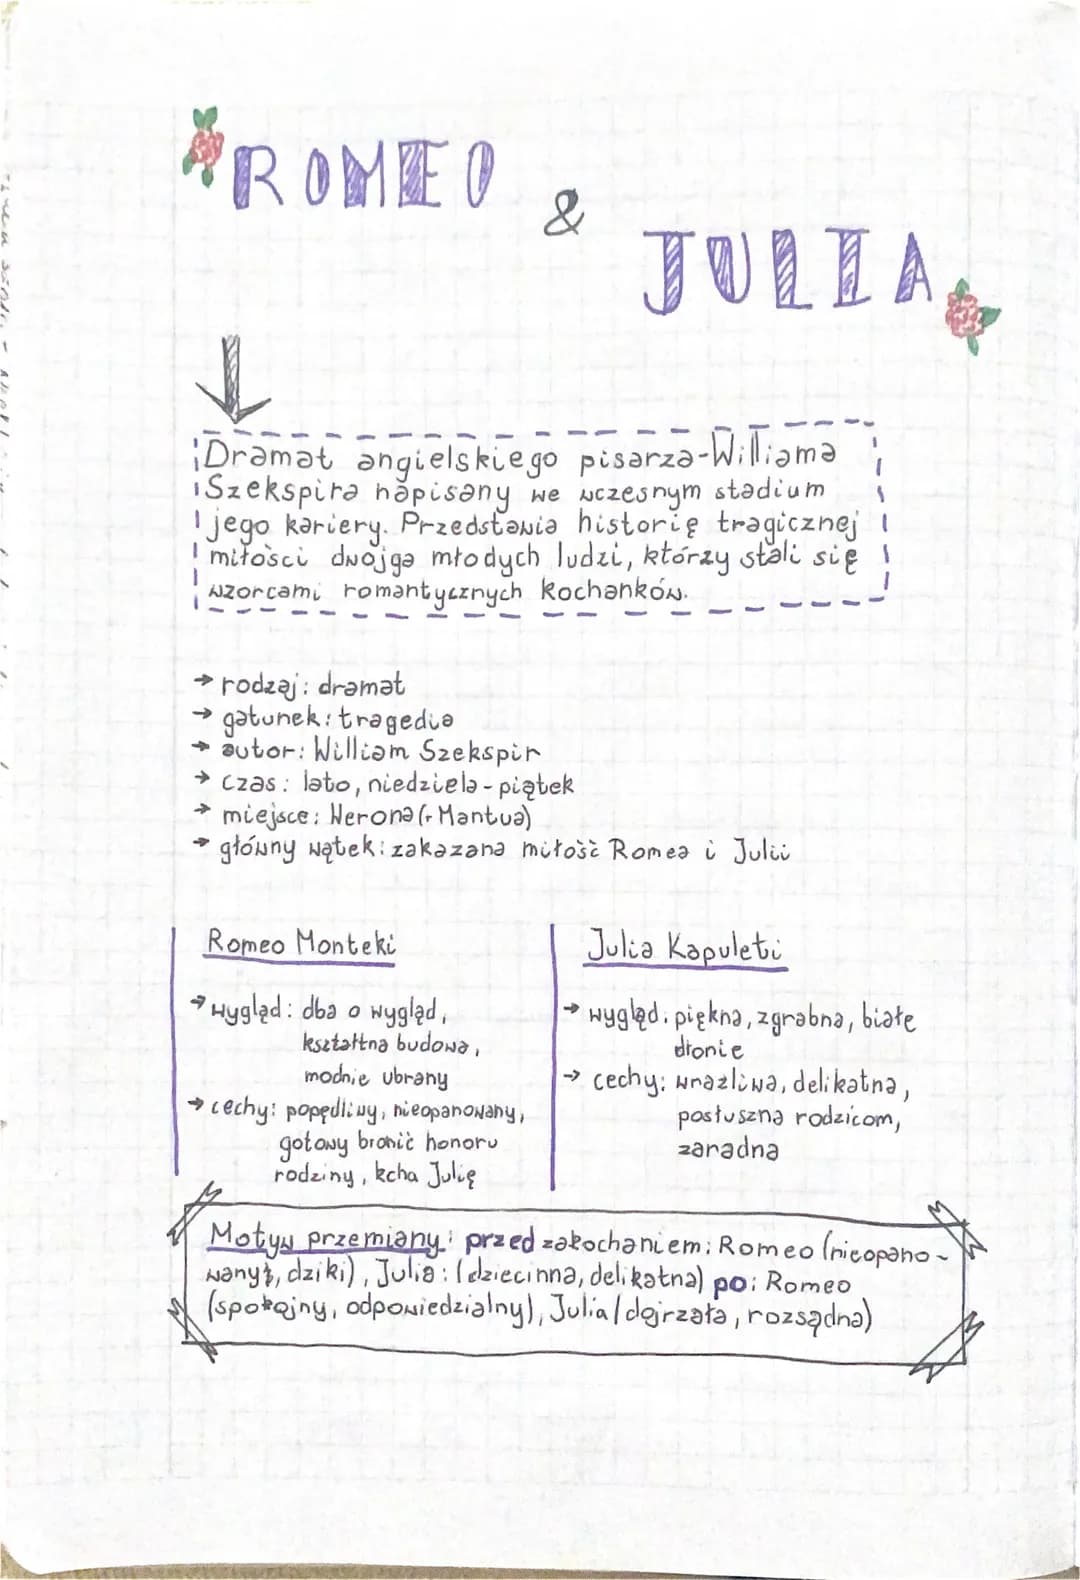 ROMEO
&
JULIA
Dramat angielskiego pisarza-Williama
Szekspira napisany we wczesnym stadium
jego kariery. Przedstawia historię tragicznej
miłości dwojga młodych ludzi, którzy stali się
wzorcami romantycznych kochanków.
→ rodzaj: dramat
→ gatunek: tragedia
→ autor: William Szekspir
→ czas: lato, niedziela - piątek
→ miejsce: Werona (+ Mantua)
→ główny wątek: zakazana miłość Romea i Julii
Romeo Monteki
→ wygląd: dba o wygląd,
kształtna budowa,
modnie ubrany
→ cechy: popędliwy, nieopanowany,
gotowy bronić honoru
rodziny, kcha Julię
Julia Kapuleti
→ wygląd: piękna, zgrabna, białe
dłonie
→ cechy: wrażliwa, delikatna,
posłuszna rodzicom,
zaradna
Motyw przemiany: przed zakochaniem: Romeo (nieopano-
wany, dziki), Julia: (dziecinna, delikatna) po: Romeo
(spokojny, odpowiedzialny), Julia (dojrzała, rozsądna)